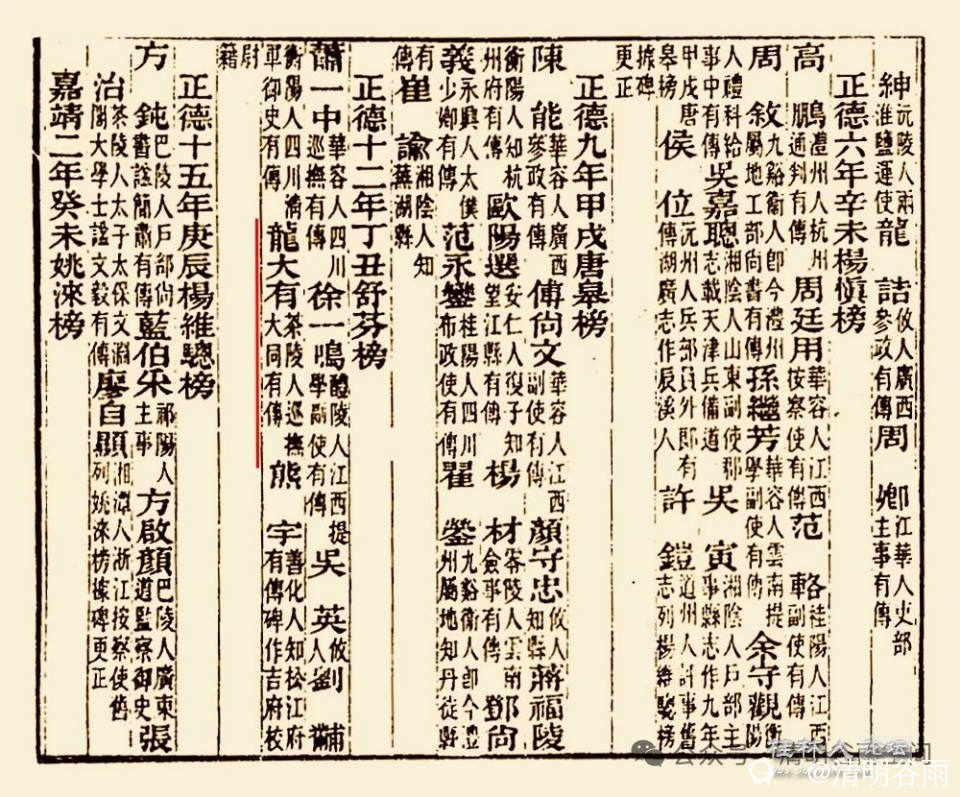 紳沅陵人兩淮鹽運使龍 誥攸人廣西參政有傳周 鄉江華人吏部主事有傳
正德六年辛未楊慎榜
高 鵬澧州人杭州通判有傳周廷用華容人江西按察使有傳范 輅桂陽人江西副使有傳
周 敘九谿衛人卽今澧州屬地工部尚書有傳孫繼芳華容人雲南提學副使有傳余守觀衡陽
人禮科給事中有傳吳嘉聰湘陰人山東副使郡志載天津兵備道吳 寅湘陰人戶部主事縣志作九年
甲戌唐皋榜侯 位沅州人兵部員外郎有傳湖廣志作辰溪人許 鎧道州人評事舊志列楊維聰榜
據碑更正
正德九年甲戌唐皋榜
陳 能華容人廣西參政有傳傅尚文華容人江西副使有傳顏守忠攸人知縣蔣福陵
衡陽人知杭州府有傳歐陽選安仁人復子知望江縣有傳楊 材零陵人雲南僉事有傳鄧尚
義永興人太僕少卿有傳范永鑾桂陽人四川布政使有傳瞿 鋻九谿衛人卽今澧州屬地知丹徒縣
有傳崔 諭湘陰人知蕪湖縣
正德十二年丁丑舒芬榜
蕭一中華容人四川巡撫有傳徐一鳴醴陵人江西提學副使有傳吳 英攸人劉 黼
衡陽人四川清軍御史有傳龍大有茶陵人巡撫大同有傳熊 宇善化人知松江府有傳碑作吉府校
尉籍
正德十五年庚辰楊維聰榜
方 鈍巴陵人戶部尚書諡簡肅有傳藍伯采祁陽人主事方啟顏巴陵人廣東道監察御史張
治茶陵人太子太保文淵閣大學士諡文毅有傳廖自顯湘潭人浙江按察使舊列姚淶榜據碑更正
嘉靖二年癸未姚淶榜
桂林人论坛
公众号
@清明谷雨